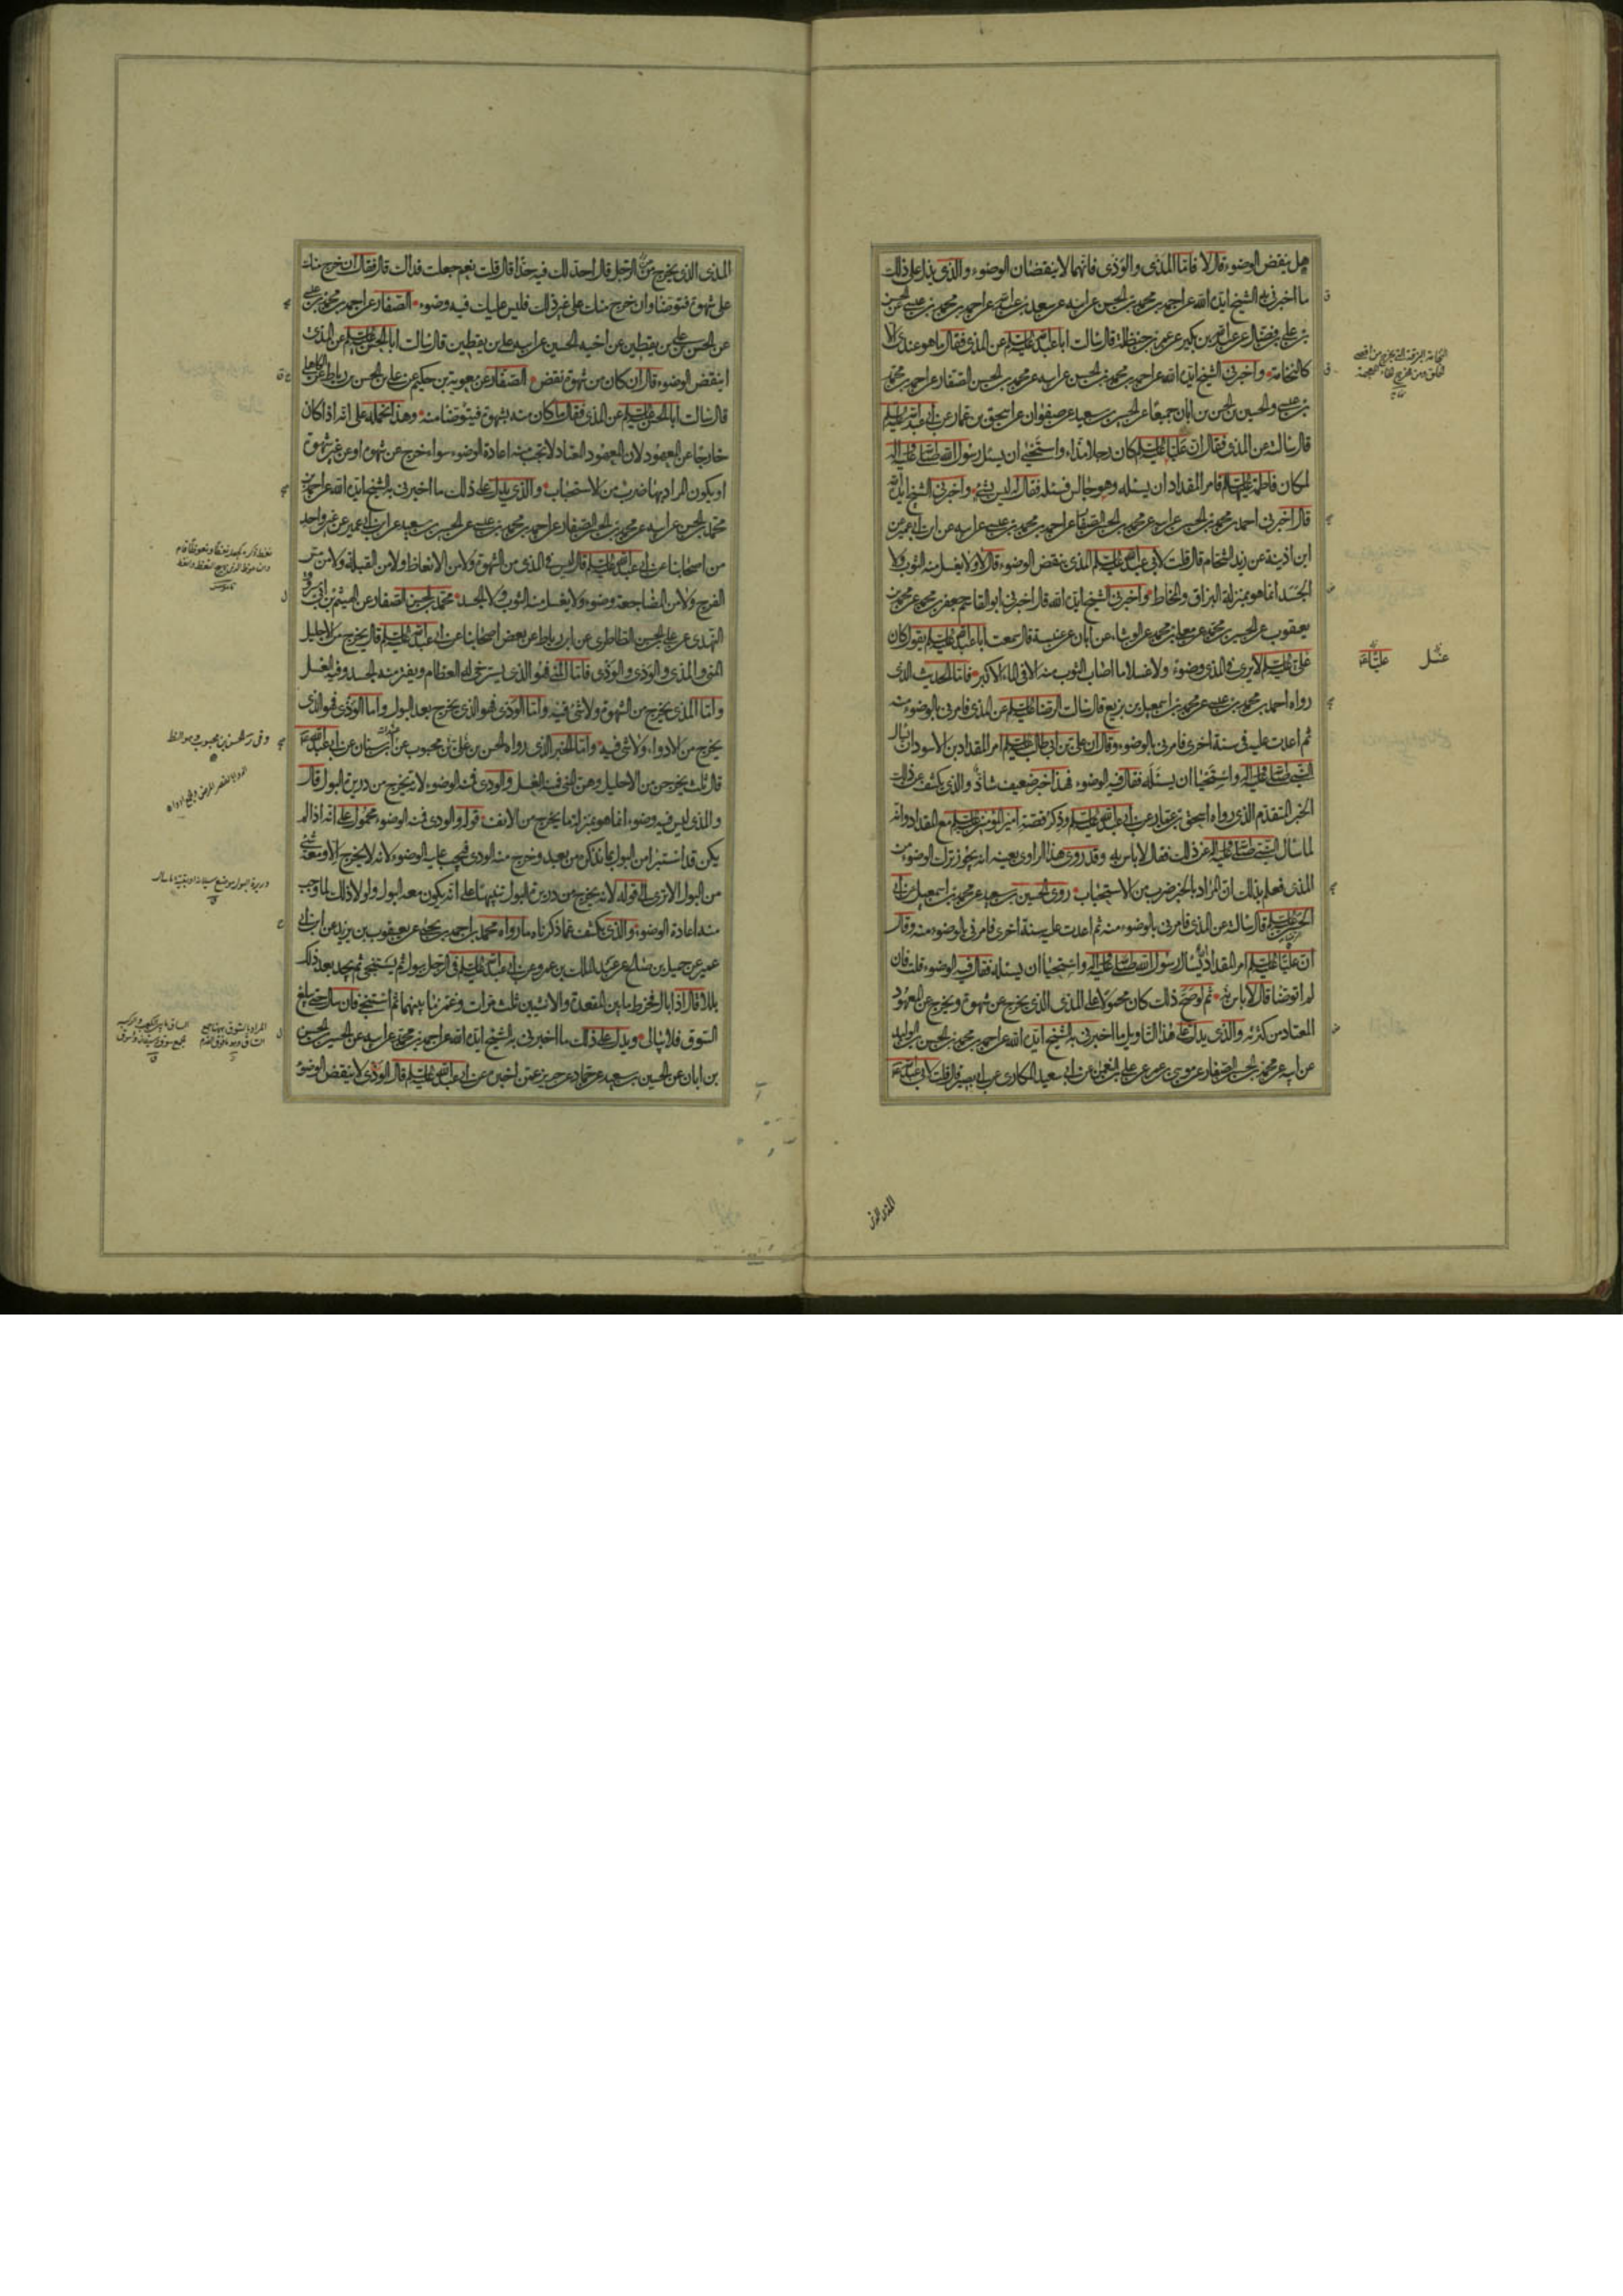 هل ينقض الوضوء قال لا فاما المذى والوذى فانهما لا ينقضان الوضوء والذى يدل على ذلك
ما اخبرنى به الشيخ ايده الله عن احمد بن محمد بن الحسن عن ابيه عن سعد بن عبد الله عن احمد بن محمد بن عيسى عن الحسن
بن على بن فضال عن عبد الله بن بكير عن عمر بن حنظلة قال سالت ابا عبد الله عليه السلم عن المذى فقال ما هو عندى الا
كالنخامة واخبرنى الشيخ ايده الله عن احمد بن محمد بن الحسن عن ابيه عن محمد بن الحسن الصفار عن احمد بن محمد
بن عيسى والحسين بن الحسن بن ابان جميعا عن الحسين بن سعيد عن صفوان عن اسحق بن عمار عن ابى عبد الله عليه السلم
قال سالته عن المذى فقال ان عليا عليه السلم كان رجلا مذاء واستحيى ان يسئل رسول الله صلى الله عليه واله
لمكان فاطمة عليها السلم فامر المقداد ان يسئله وهو جالس فسئله فقال له ليس بشئ واخبرنى الشيخ ايده الله
قال اخبرنى احمد بن محمد بن الحسن عن ابيه عن محمد بن الحسن الصفار عن احمد بن محمد بن عيسى عن ابيه عن ابن ابى عمير عن
ابن اذينة عن زيد الشحام قال قلت لابى عبد الله عليه السلم المذى ينقض الوضوء قال لا ولا يغسل منه الثوب ولا
الجسد انما هو بمنزلة البزاق والمخاط واخبرنى الشيخ ايده الله قال اخبرنى ابو القاسم جعفر بن محمد عن محمد بن
يعقوب عن الحسين بن محمد عن معلى بن محمد عن الوشاء عن ابان عن عنبسة قال سمعت ابا عبد الله عليه السلم يقول كان
على عليه السلم لا يرى فى المذى وضوء ولا غسلا ما اصاب الثوب منه الا فى الماء الاكبر فاما الحديث الذى
رواه احمد بن محمد بن عيسى عن محمد بن اسمعيل بن بزيع قال سالت الرضا عليه السلم عن المذى فامرنى بالوضوء منه
ثم اعدت عليه فى سنة اخرى فامرنى بالوضوء وقال ان على بن ابى طالب عليه السلم امر المقداد بن الاسود ان يسال
النبى صلى الله عليه واله واستحيا ان يسئله فقال فيه الوضوء فهذا خبر ضعيف شاذ والذى يكشف عن ذلك
الخبر المتقدم الذى رواه اسحق بن عمار عن ابى عبد الله عليه السلم وذكر قصة امير المؤمنين عليه السلم مع المقداد وانه
لما سال النبى صلى الله عليه واله عن ذلك فقال لا باس به وقد روى هذا الراوى بعينه انه يجوز ترك الوضوء من
المذى فعلم بذلك ان المراد بالخبر ضرب من الاستحباب روى الحسين بن سعيد عن محمد بن اسمعيل عن ابى
الحسن عليه السلم قال سالته عن المذى فامرنى بالوضوء منه ثم اعدت عليه سنة اخرى فامرنى بالوضوء منه وقال
ان عليا عليه السلم امر المقداد ان يسال رسول الله صلى الله عليه واله واستحيا ان يسئله فقال فيه الوضوء قلت فان
لم اتوضا قال لا باس به ثم لو صح ذلك كان محمولا على المذى الذى يخرج عن شهوة ويخرج عن المعهود
المعتاد من كثرته والذى يدل على هذا التاويل ما اخبرنى به الشيخ ايده الله عن احمد بن محمد بن الحسن بن الوليد
عن ابيه عن محمد بن الحسن الصفار عن موسى بن عمر عن على بن النعمان عن ابى سعيد المكارى عن ابى بصير قال قلت لابى عبد الله
عليا
المذى الذى
المذى الذى يخرج من الرجل قال احد لك فيه حدا قال قلت نعم جعلت فداك قال فقال ان خرج منك
على شهوة فتوضا وان خرج منك على غير ذلك فليس عليك فيه وضوء الصفار عن احمد بن محمد بن عيسى
عن الحسن بن على بن يقطين عن اخيه الحسين عن ابيه على بن يقطين قال سالت ابا الحسن عليه السلم عن المذى
اينقض الوضوء قال ان كان من شهوة نقض الصفار عن معوية بن حكيم عن على بن الحسن بن رباط عن الكاهلى
قال سالت ابا الحسن عليه السلم عن المذى فقال ما كان منه بشهوة فيتوضا منه وهذا نحمله على انه اذا كان
خارجا عن المعهود لان المعهود المعتاد لا تجب منه اعادة الوضوء سواء خرج عن شهوة او عن غير شهوة
او يكون المراد بها ضرب من الاستحباب والذى يدل على ذلك ما اخبرنى به الشيخ ايده الله عن احمد بن
محمد بن الحسن عن ابيه عن محمد بن الحسن الصفار عن احمد بن محمد بن عيسى عن الحسين بن سعيد عن ابن ابى عمير عن غير واحد
من اصحابنا عن ابى عبد الله عليه السلم قال ليس فى المذى من الشهوة ولا من الانعاظ ولا من القبلة ولا من مس
الفرج ولا من المضاجعة وضوء ولا يغسل منه الثوب ولا الجسد محمد بن الحسن الصفار عن الهيثم بن ابى مسروق
النهدى عن على بن الحسن الطاطرى عن ابن رباط عن بعض اصحابنا عن ابى عبد الله عليه السلم قال يخرج من الاحليل
المنى والمذى والوذى والودى فاما المنى فهو الذى يسترخى له العظام ويفتر منه الجسد وفيه الغسل
واما المذى يخرج من الشهوة ولا شئ فيه واما الودى فهو الذى يخرج بعد البول واما الوذى فهو الذى
يخرج من الادواء ولا شئ فيه واما الخبر الذى رواه الحسن بن على بن محبوب عن ابن سنان عن ابى عبد الله
قال ثلث يخرجن من الاحليل وهن المنى فمنه الغسل والودى فمنه الوضوء لانه يخرج من دريرة البول قال
والمذى ليس فيه وضوء انما هو بمنزلة ما يخرج من الانف قوله والودى فمنه الوضوء محمول على انه اذا لم
يكن قد استبرا من البول بما نذكر من بعد وخرج منه الودى فيجب عليه الوضوء لانه لا يخرج الا ومعه شئ
من البول الا ترى الى قوله لانه يخرج من دريرة البول تنبيها على انه يكون معه البول ولولا ذلك لما وجب
منه اعادة الوضوء والذى يكشف عما ذكرناه ما رواه محمد بن احمد بن يحيى عن يعقوب بن يزيد عن ابن ابى
عمير عن جميل بن صالح عن عبد الملك بن عمرو عن ابى عبد الله عليه السلم فى الرجل يبول ثم يستنجى ثم يجد بعد ذلك
بللا قال اذا بال فخرط ما بين المقعدة والانثيين ثلث مرات وغمز ما بينهما ثم استنجى فان سال حتى يبلغ
السوق فلا يبالى ويدل على ذلك ما اخبرنى به الشيخ ايده الله عن احمد بن محمد عن ابيه عن الحسين بن الحسن
بن ابان عن الحسين بن سعيد عن حماد عن حريز عمن اخبره عن ابى عبد الله عليه السلم قال الودى لا ينقض الوضوء